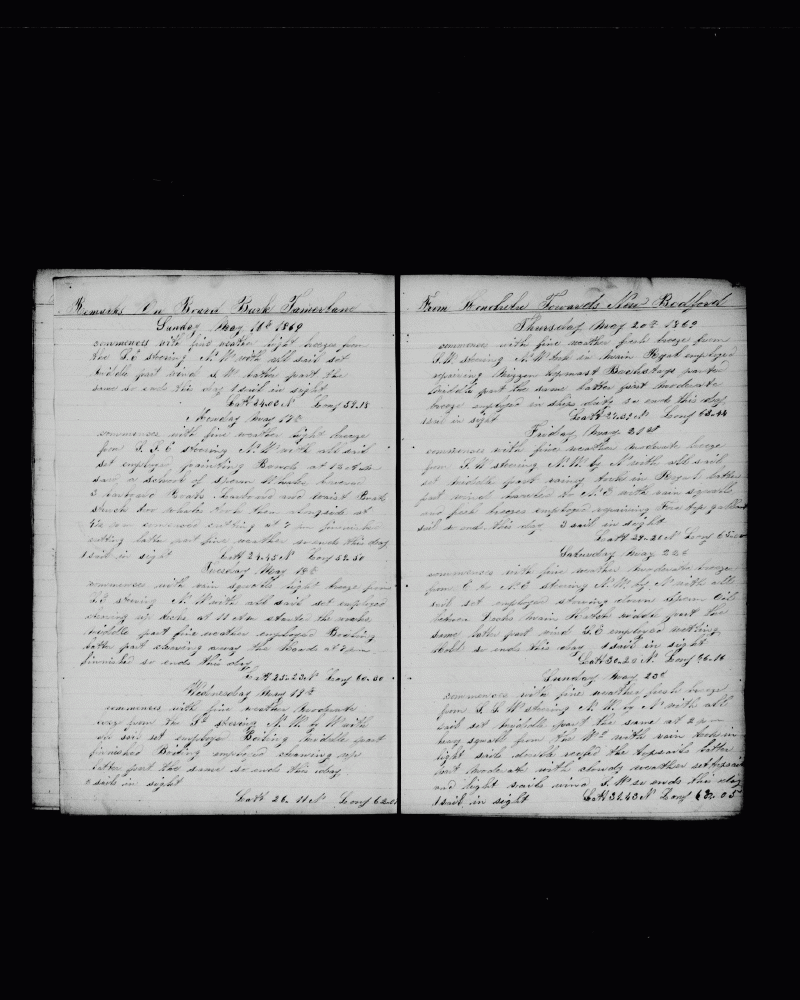 Remarks On Board Bark Tamerlane
Sunday May 16th 1869
commences with fine weather light breeze from
the S.E steering N.W with all sail set
middle part wind S.W latter part the
same so ends this day 1 sail in sight
Latt 24.03 N Long 58.18
Monday May 17th
commences with fine weather light breeze
from S.S.E steering N.W with all sail
set employed painting Boats at 10 A.M
saw a school of Sperm Whales lowered
3 Boats Larboard and Waist Boats
struck two whales took them alongside at
pm commenced cutting at 7 pm finished
cutting latter part fine weather so ends this day
1 sail in sight Latt 24.45 N Long 59.50
Tuesday May 18th
commences with rain squalls light breeze from
S.E steering N.W with all sail set employed
clearing up decks at 11 AM started the works
middle part fine weather employed Boiling
latter part clearing away the heads at 7 pm
finished so ends this day
Latt 25.23 N Long 60.50
Wednesday May 19th
commences with fine weather moderate
from the S.E steering N.W. by W with
all sail set employed Boiling middle part
finished Boiling employed cleaning up
latter part the same so ends this day
2 sails in sight
Latt 26.11 N Long
From Honolulu Towards New Bedford
Thursday May 20th 1869
commences with fine weather fresh breeze from
S.W steering N.W in main Royal employed
repairing Mizzen topmast Backstays
middle part the same latter part moderate
breeze employed in ships duty so ends this day
sail in sight Latt 27.32 N Long 63.44
Friday May 21st
commences with fine weather moderate breeze
from S.W steering N.W. by N with all sail
set middle part rainy took in Royal latter
part wind hauled to N.E with rain squalls
and fresh breezes employed repairing Fore top gallant
sail so ends this day 3 sail in sight
Latt 29.21 N Long
Saturday May 22d
commences with fine weather moderate breeze
from E to N.E steering N.W. by N with all
sail set employed stowing down Sperm Oil
between Decks main Hatch middle part the
same latter part wind S.E employed
so ends this day 1 sail in sight
Latt 30.20 N Long
Sunday May 23d
commences with fine weather fresh breeze
from S.S.W steering N.W. by N with all
sail set middle part the same at 2 pm
heavy squall from the W with rain took in
light sails double reefed the topsails latter
part moderate with cloudy weather set topsails
and light sails wind S.W so ends this day
1 sail in sight Latt 31.43 N Long